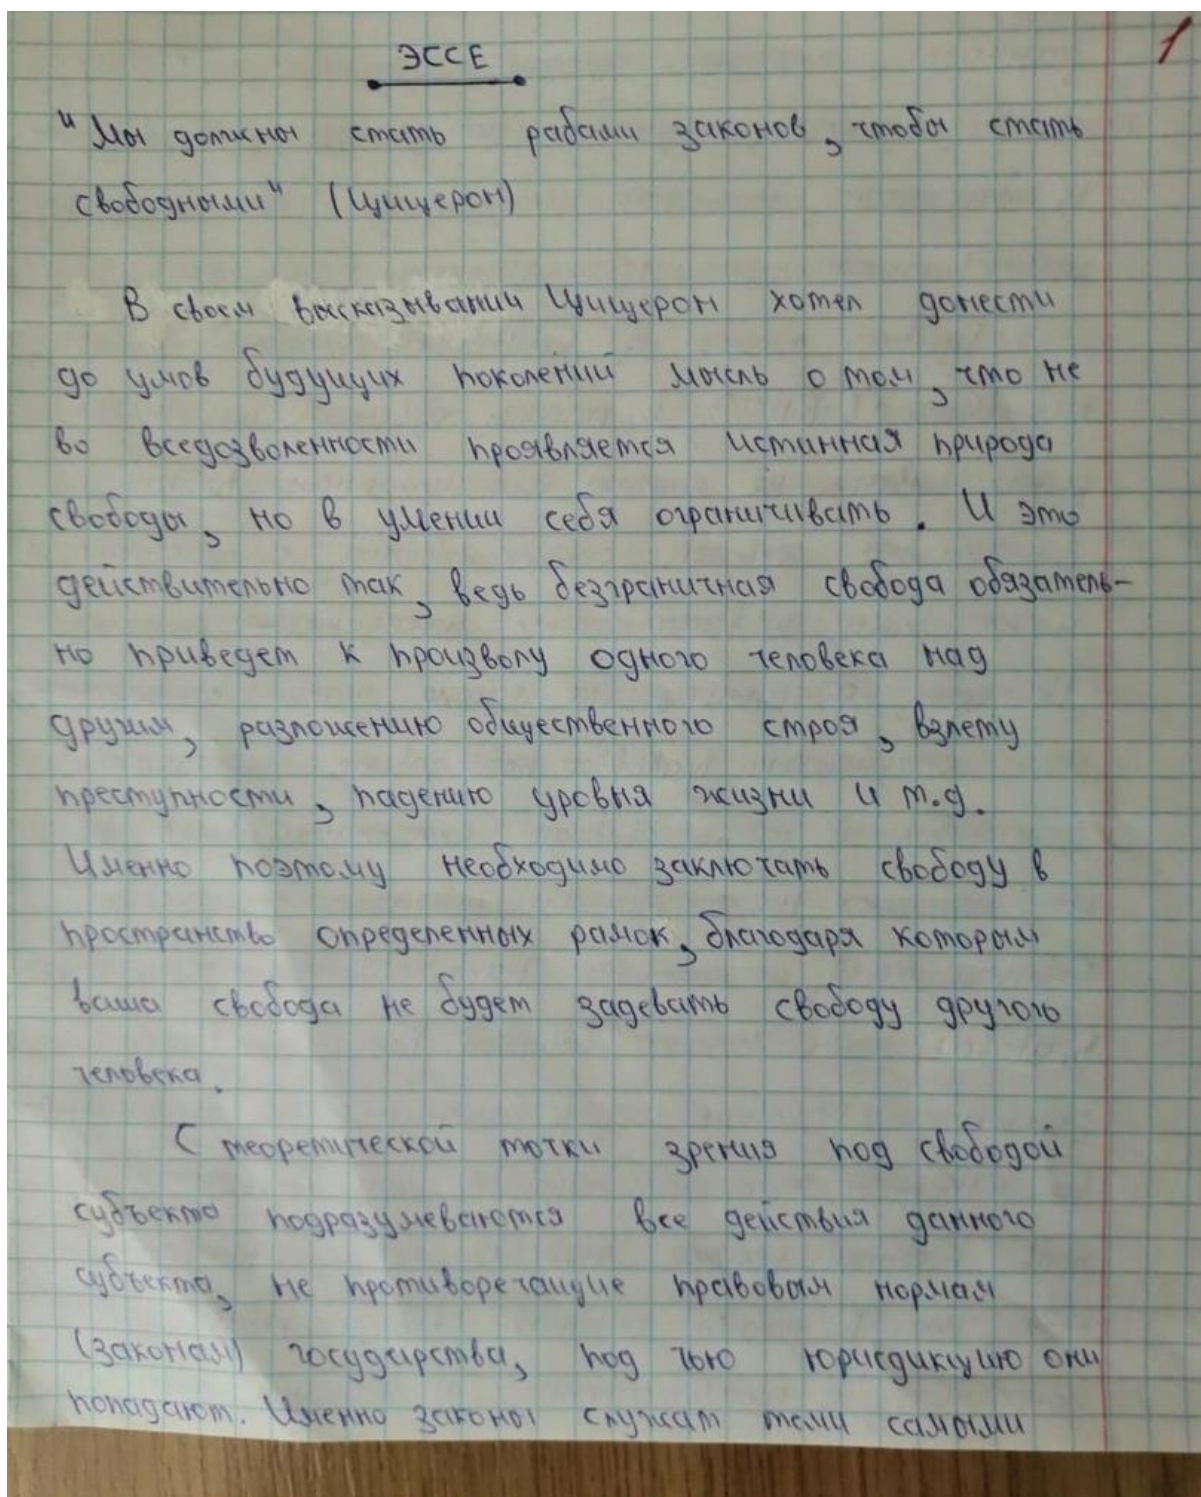 ЭССЕ
1
"Мы должны стать рабами законов, чтобы стать
свободными" (Цицерон)
В своем высказывании Цицерон хотел донести
до умов будущих поколений мысль о том, что не
во вседозволенности проявляется истинная природа
свободы, но в умении себя ограничивать. И это
действительно так, ведь безграничная свобода обязатель-
но приведет к произволу одного человека над
другим, разложению общественного строя, взлету
преступности, падению уровня жизни и т.д.
Именно поэтому необходимо заключать свободу в
пространство определенных рамок, благодаря которым
ваша свобода не будет задевать свободу другого
человека.
С теоретической точки зрения под свободой
субъекта подразумеваются все действия данного
субъекта, не противоречащие правовым нормам
(законам) государства, под чью юрисдикцию они
попадают. Именно законы служат теми самыми